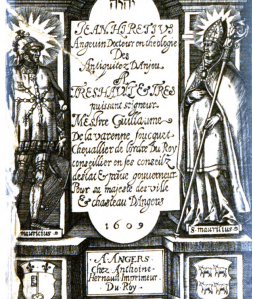 יהוה
JEAN HIRETIUS
Angevin Docteur en theologie
Des
Antiquitez D'Anjou
A
TRESHAULT & TRES
puissant seigneur
Messire Guillaume
De la varenne foucquet
Chevallier de lordre Du Roy
conseillier en ses conseilz
destat & prive gouverneur
Pour sa majeste des ville
& chasteau D'Angers
1609
mauricius
S mauritius
A ANGERS
Chez Anthoine
Hernault Imprimeur
Du Roy